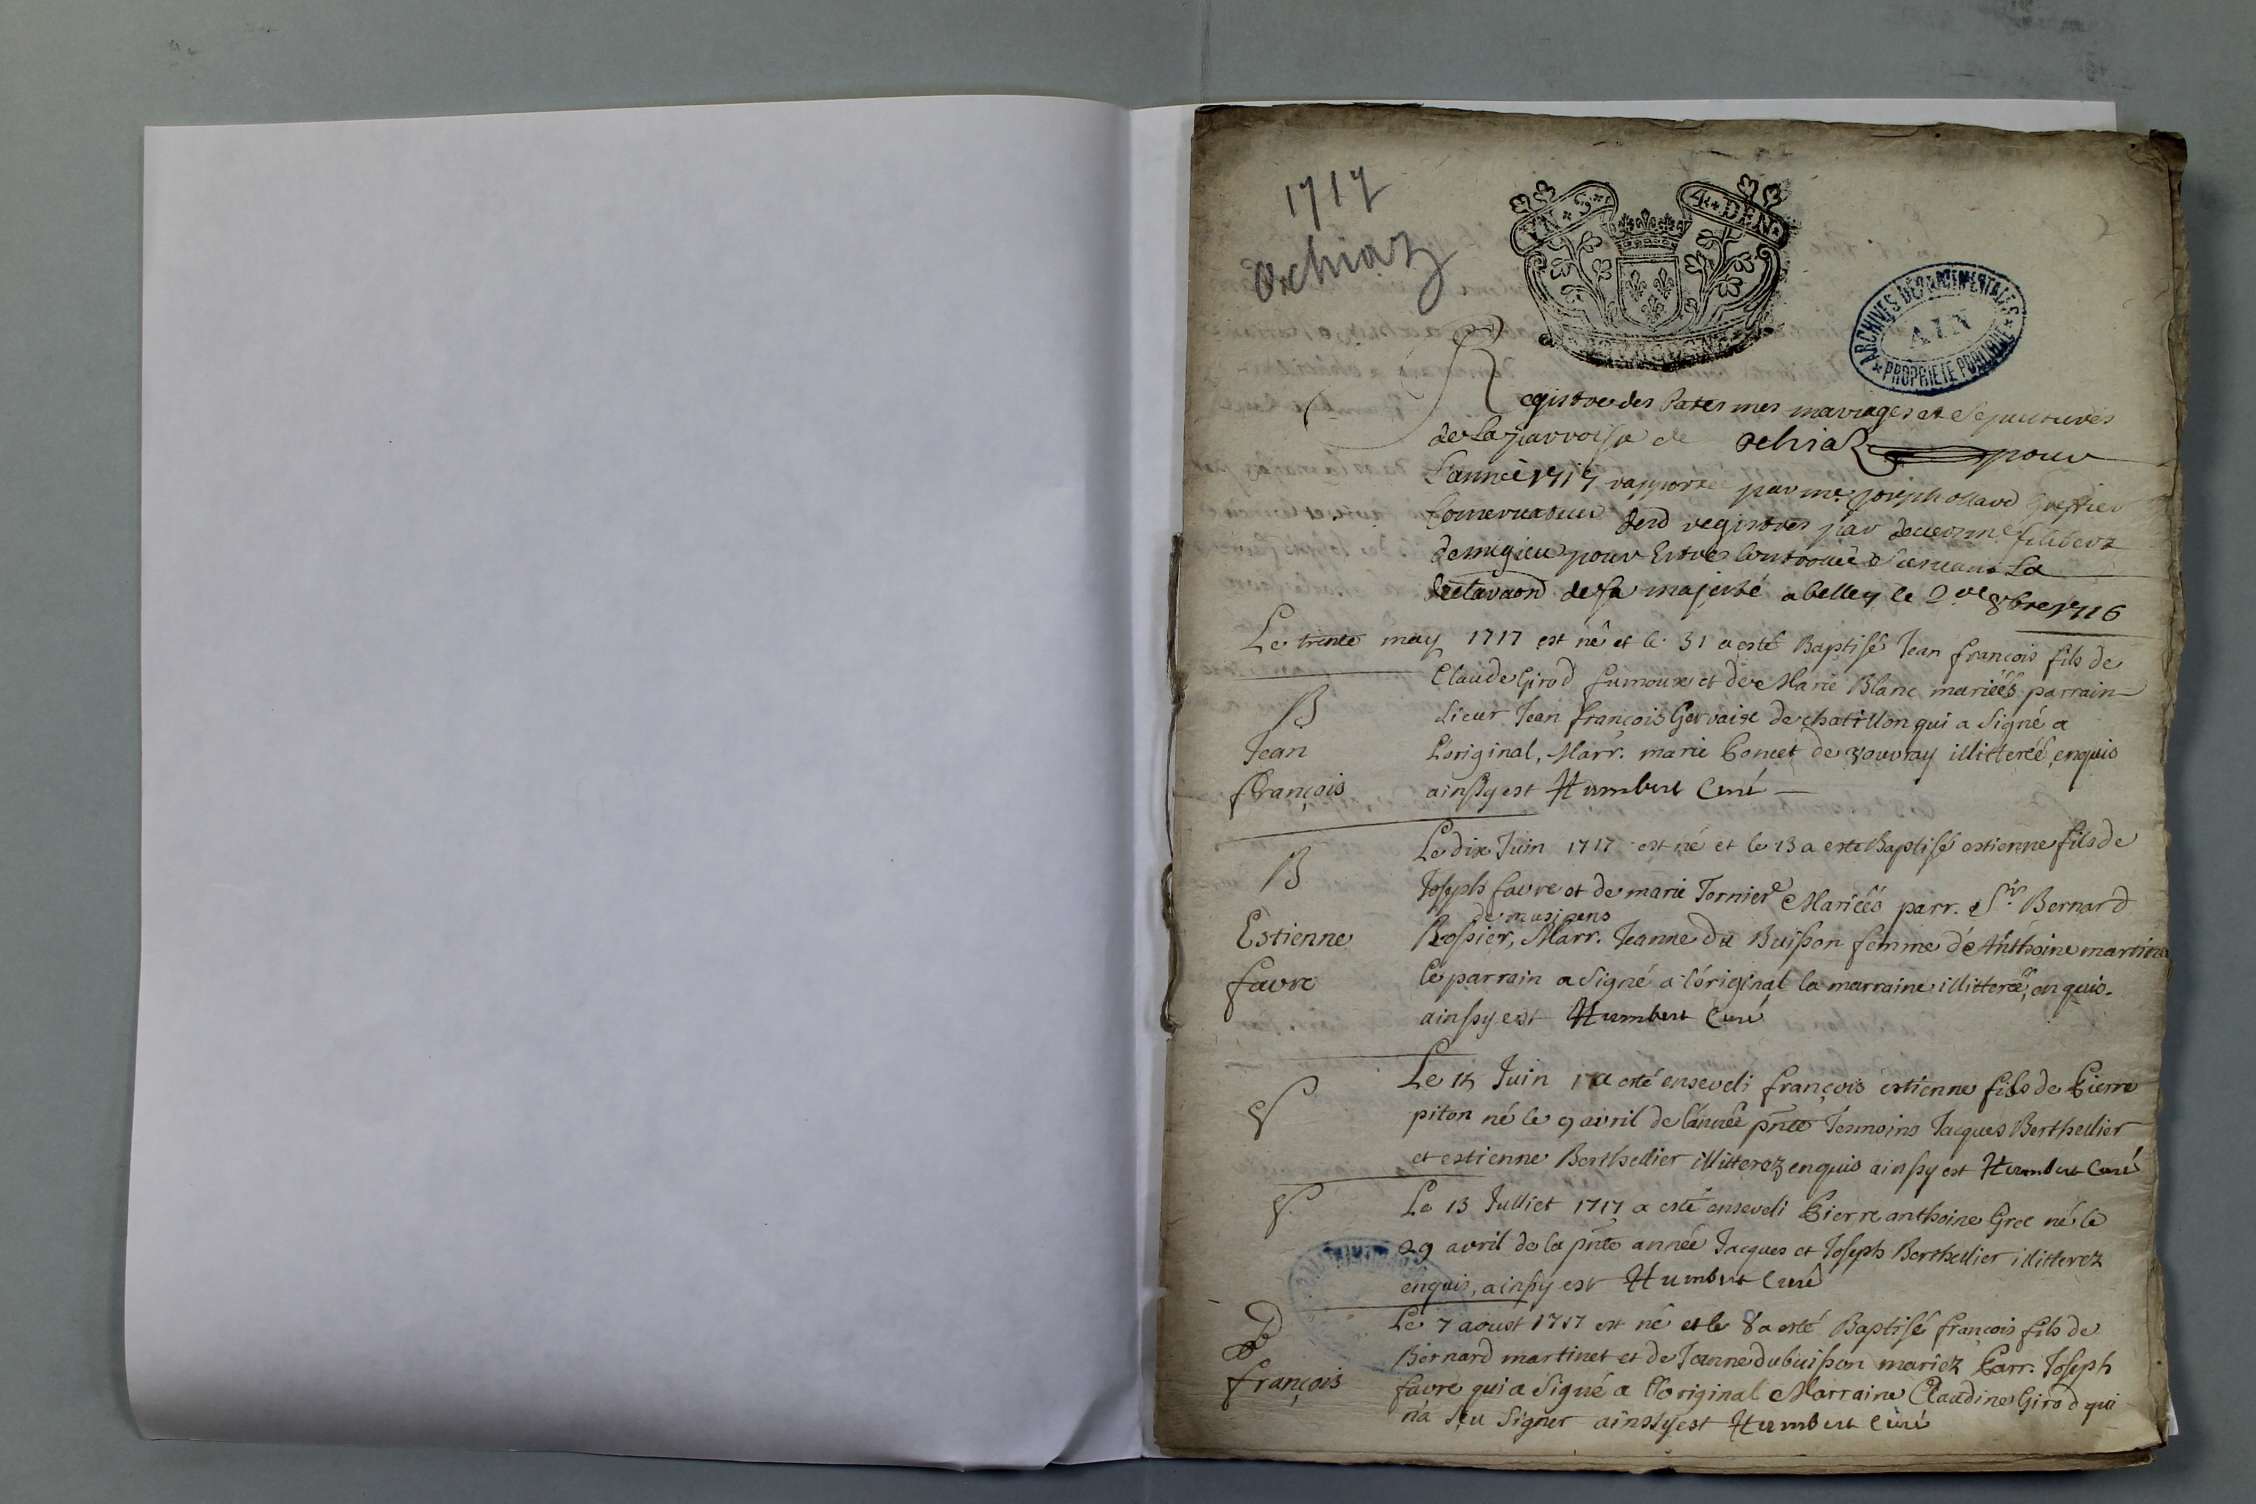 1717
Ochiaz
VN · S · 4 · DEN
BOURGOGNE
ARCHIVES DÉPARTEMENTALES
AIN
PROPRIÉTÉ PUBLIQUE
Registre des Batesmes mariages et Sepultures
de La parroisse de Ochiaz pour
L'année 1717 rapporté par me. Joseph ollard Greffier
Conservateur desd registres par devernne filibert
demigieu pour Estre Controllé Suivant La
declaraon de sa majesté a belley le 2 8bre 1716
Le trente may 1717 est né et le 31 a esté Baptisé Jean françois fils de
Claude Girod fumoux et de Marie Blanc mariéés parrain
B
sieur Jean françois Gervaise de chatillon qui a signé a
Jean
L'original, Marr. marie Poncet de vouvray illitteréé, enquis
françois
ainssy est Humbert Curé
Le dix Juin 1717 est né et le 13 a esté Baptisé estienne fils de
B
Joseph favre et de marie Ternier Mariéés parr. Sr. Bernard
de musinens
Estienne
Rossier, Marr. Jeanne du Buisson femme d'e Anthoine martine
favre
le parrain a signé a l'original la marraine illitteréé, enquis.
ainssy est Humbert Curé
S
Le 14 Juin 17 a esté enseveli françois estienne fils de Pierre
piton né le 9 avril de l'année pnte Tesmoins Jacques Berthellier
et estienne Berthellier illitterez enquis ainssy est Humbert Curé
S
Le 13 Julliet 1717 a esté enseveli Pierre anthoine Groc né le
29 avril de la pnte année Jacques et Joseph Berthellier illitterez
enquis, ainssy est Humbert Curé
B
Le 7 aoust 1717 est né et le 8 a esté Baptisé françois fils de
Bernard martinet et de Jeanne dubuisson mariez Parr. Joseph
françois
favre qui a signé a l'original Marraine Claudine Girod qui
n'a sçu signer ainssy est Humbert Curé